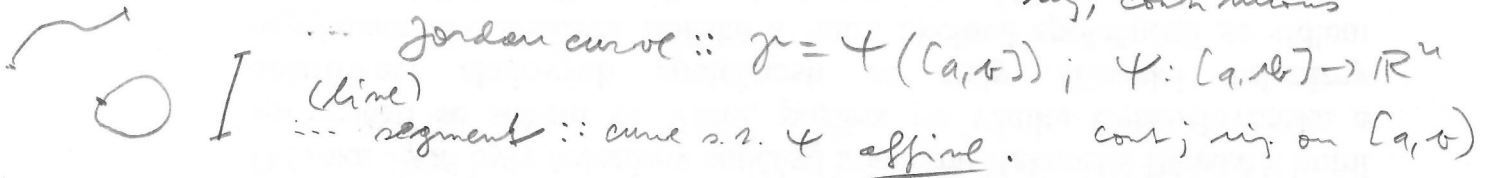 inj, continuous
... Jordan curve :: γ = Ψ([a,b]); Ψ: [a,b] → ℝⁿ
(line)
... segment :: curve s.t. Ψ affine. cont, inj on [a,b)